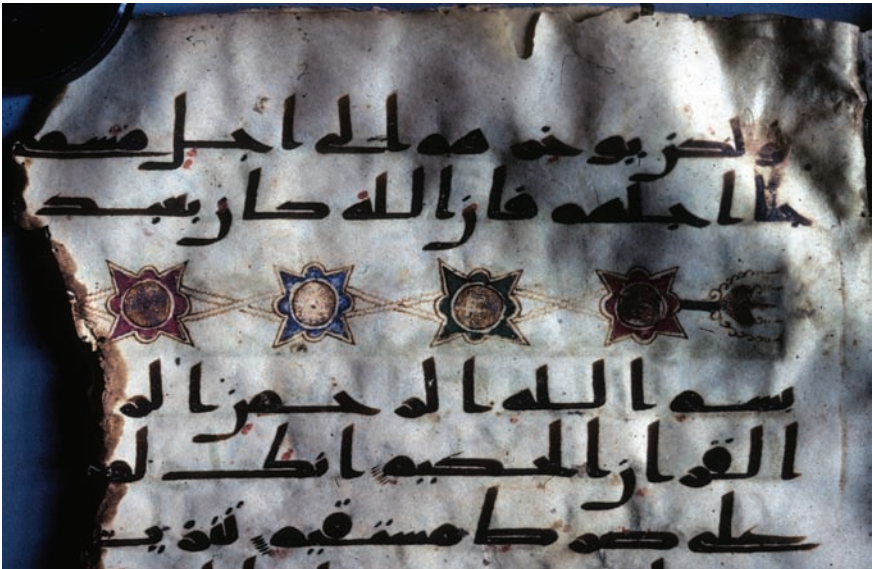 ولكن يوخر هم الى اجل مسم
جا اجلهم فان الله كان بعبد
بسم الله الرحمن الر
القران الحكيم انك لم
على صرط مستقيم تنزيـ